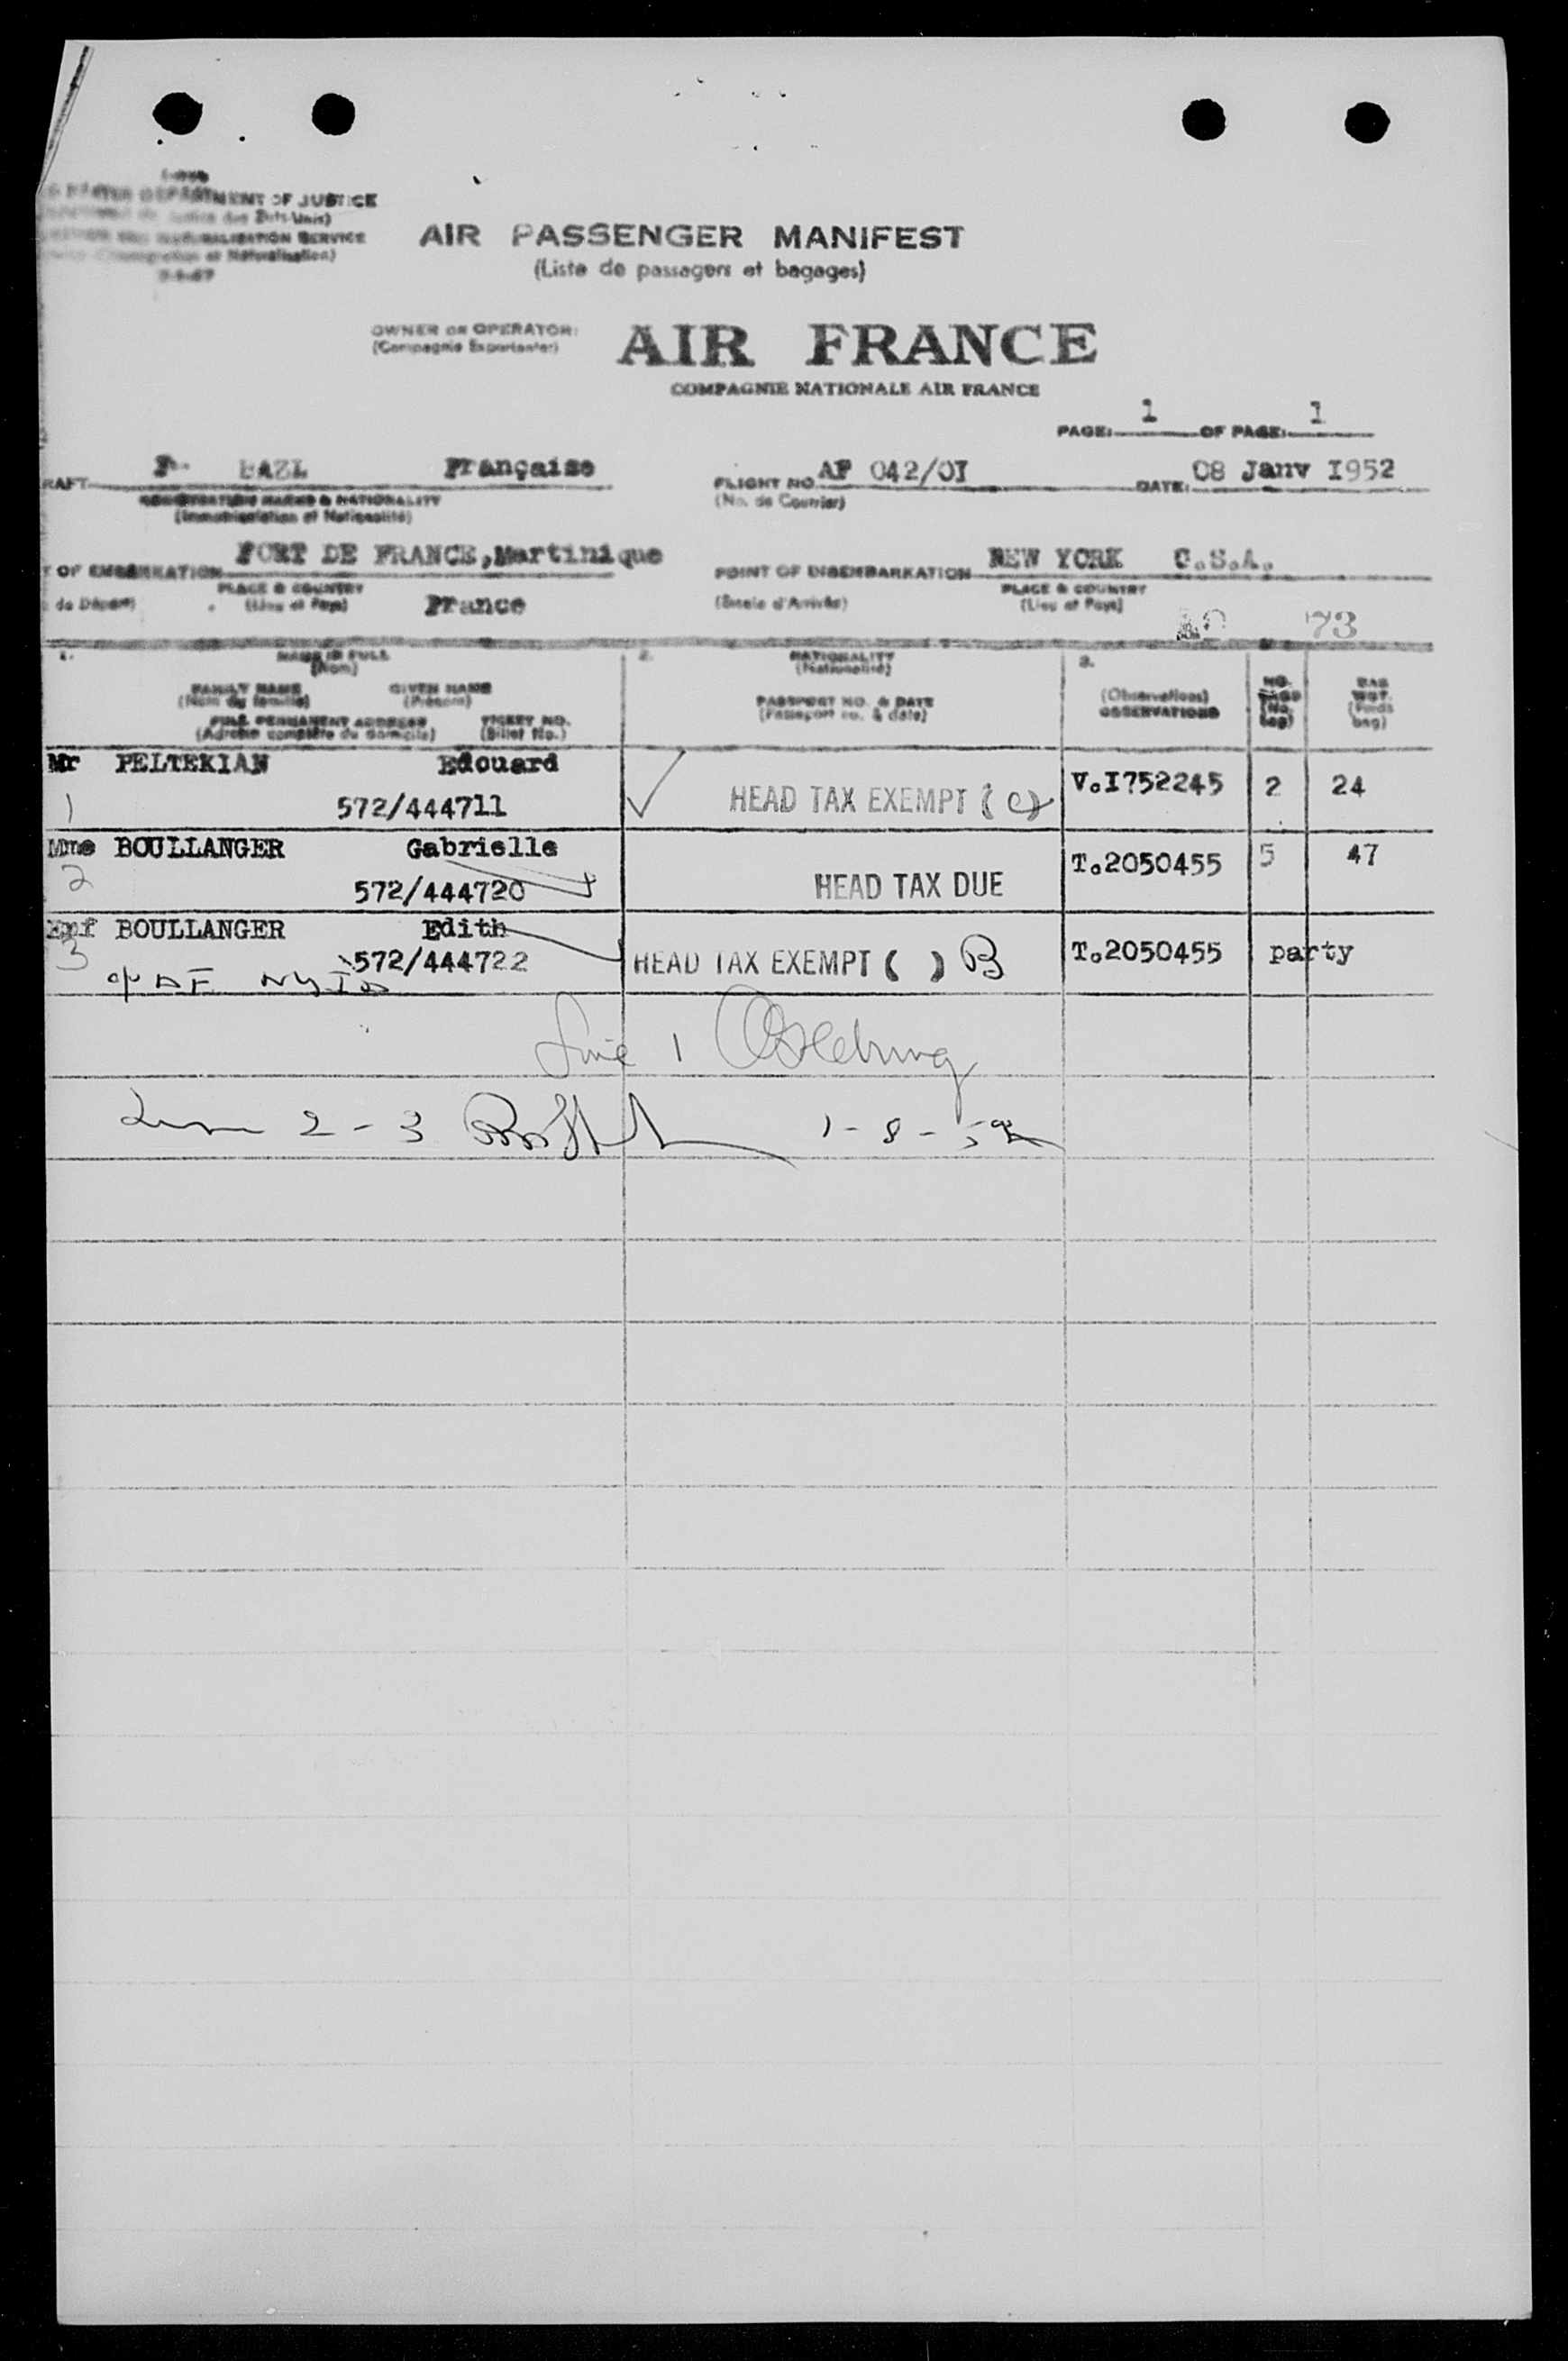 DEPARTMENT OF JUSTICE
NATURALIZATION SERVICE
AIR PASSENGER MANIFEST
(Liste de passagers et bagages)
OWNER OR OPERATOR:
AIR FRANCE
COMPAGNIE NATIONALE AIR FRANCE
PAGE: 1 OF PAGE: 1
RAFT F- BAZL Française FLIGHT NO AF 042/0I DATE: 08 Janv I952
REGISTRATION MARKS & NATIONALITY (No. de Courrier)
(Immatriculation et Nationalité)
T OF EMBARKATION FORT DE FRANCE,Martinique POINT OF DISEMBARKATION NEW YORK U.S.A.
de Départ) PLACE & COUNTRY (Lieu et Pays) France (Escale d'Arrivée) PLACE & COUNTRY (Lieu et Pays)
73
1. NAME IN FULL (Nom) 2. NATIONALITY (Nationalité) 3.
FAMILY NAME (Nom de famille) GIVEN NAME (Prénom) PASSPORT NO. & DATE (Passeport no. & date) (Observations) OBSERVATIONS NO. BAGS (No. bag) BAG WGT. (Poids bag)
FULL PERMANENT ADDRESS (Adresse complète du domicile) TICKET NO. (Billet No.)
Mr PELTEKIAN Edouard
1 572/444711 HEAD TAX EXEMPT (C) V.I752245 2 24
Mme BOULLANGER Gabrielle
2 572/444720 HEAD TAX DUE T.2050455 5 47
Enf BOULLANGER Edith
3 572/444722 HEAD TAX EXEMPT ( ) B T.2050455 party
Line 1
2 - 3 1-8-52